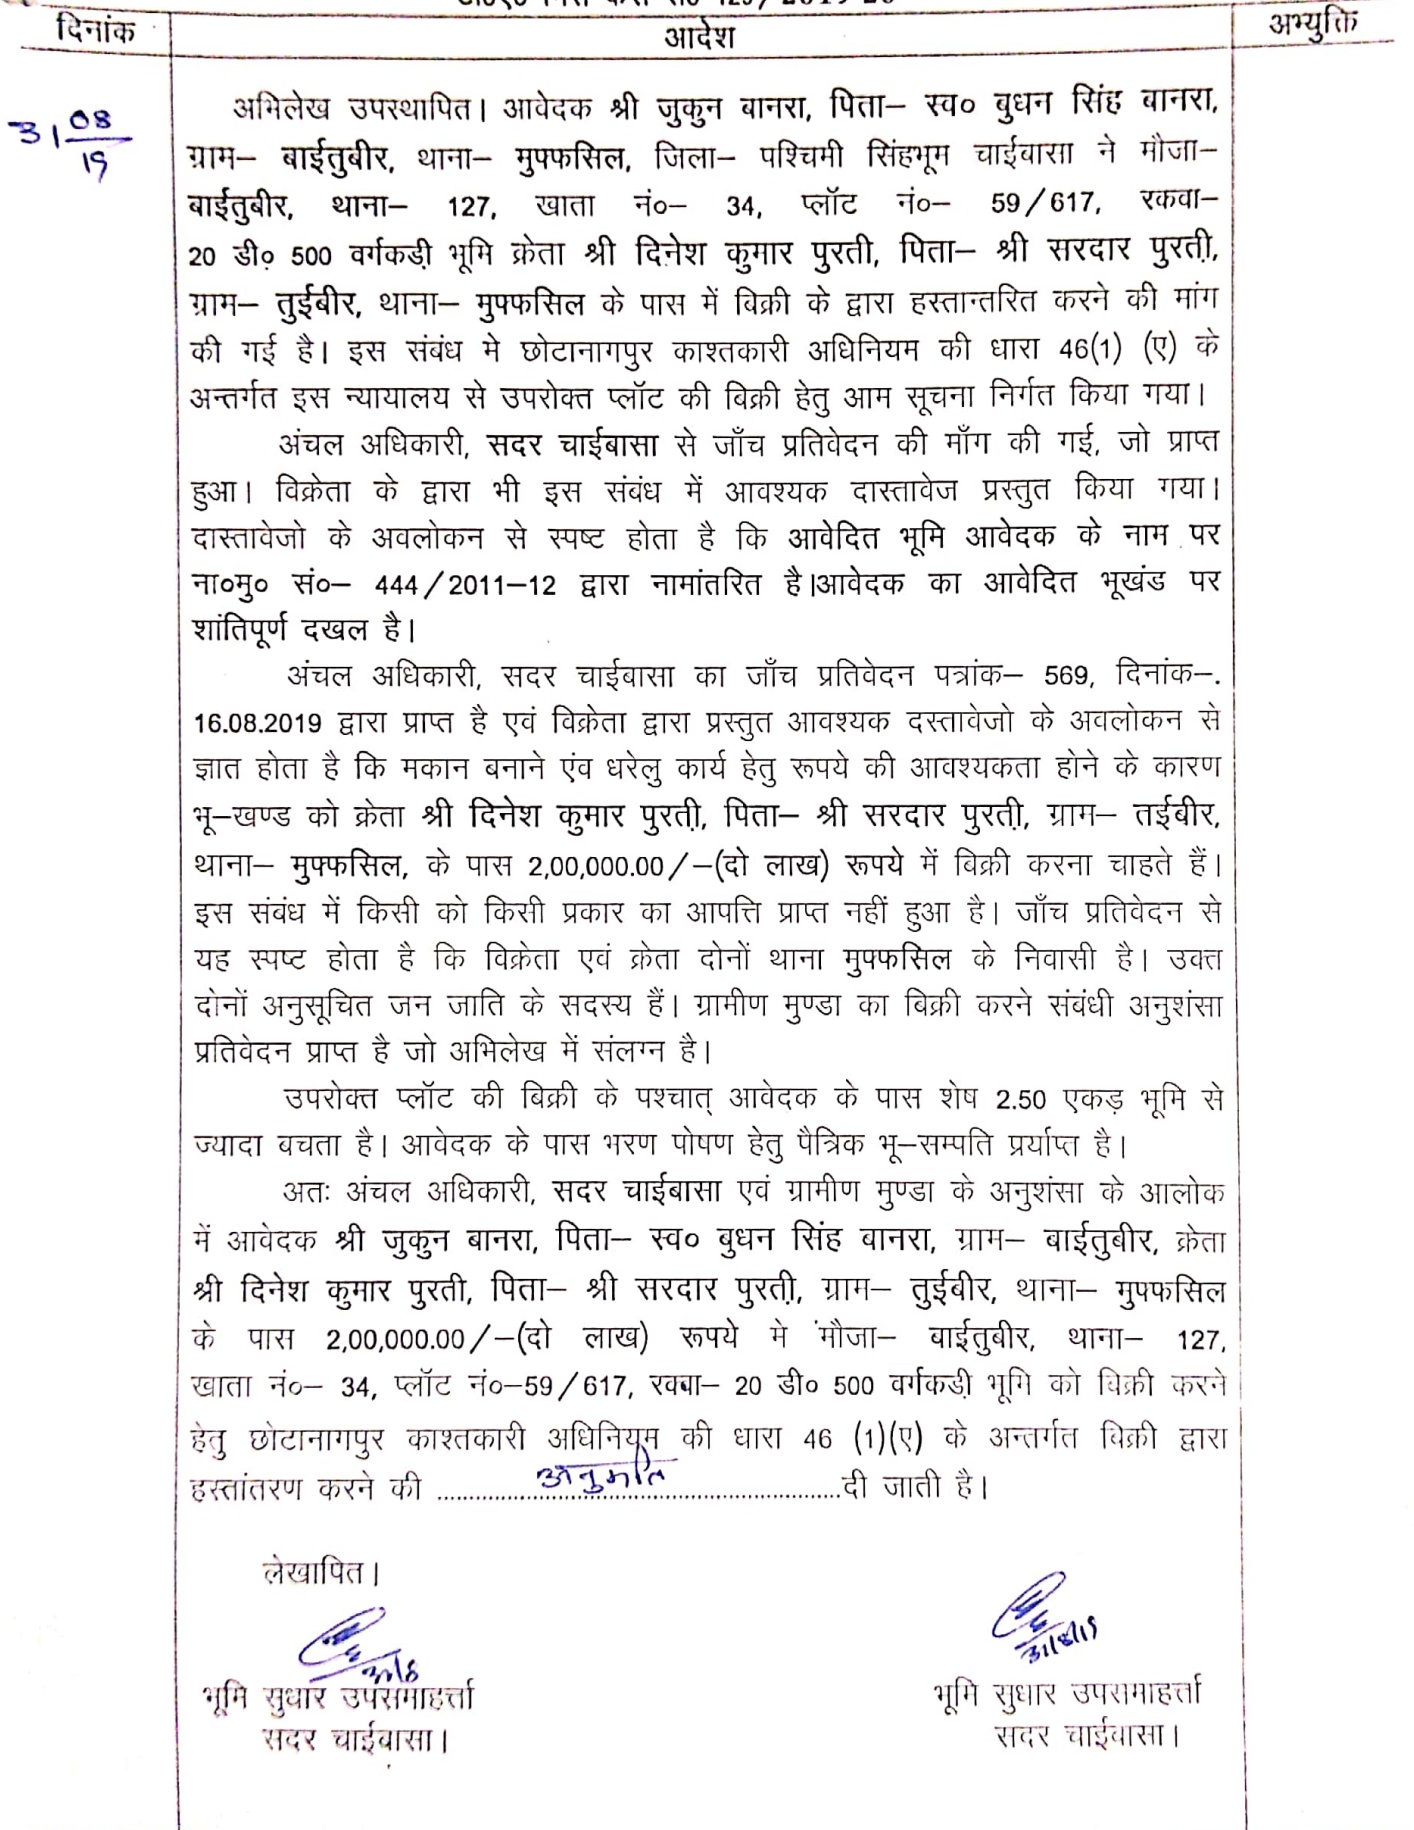 दिनांक
आदेश
अभ्युक्ति
31 08
19
अभिलेख उपस्थापित। आवेदक श्री जुकुन बानरा, पिता– स्व० बुधन सिंह बानरा,
ग्राम– बाईतुबीर, थाना– मुफ्फसिल, जिला– पश्चिमी सिंहभूम चाईबासा ने मौजा–
बाईतुबीर, थाना– 127, खाता नं०– 34, प्लॉट नं०– 59/617, रकवा–
20 डी० 500 वर्गकडी़ भूमि क्रेता श्री दिनेश कुमार पुरती, पिता– श्री सरदार पुरती,
ग्राम– तुईबीर, थाना– मुफ्फसिल के पास में बिक्री के द्वारा हस्तान्तरित करने की मांग
की गई है। इस संबंध मे छोटानागपुर काश्तकारी अधिनियम की धारा 46(1) (ए) के
अन्तर्गत इस न्यायालय से उपरोक्त प्लॉट की बिक्री हेतु आम सूचना निर्गत किया गया।
अंचल अधिकारी, सदर चाईबासा से जाँच प्रतिवेदन की माँग की गई, जो प्राप्त
हुआ। विक्रेता के द्वारा भी इस संबंध में आवश्यक दास्तावेज प्रस्तुत किया गया।
दास्तावेजो के अवलोकन से स्पष्ट होता है कि आवेदित भूमि आवेदक के नाम पर
ना०मु० सं०– 444/2011–12 द्वारा नामांतरित है।आवेदक का आवेदित भूखंड पर
शांतिपूर्ण दखल है।
अंचल अधिकारी, सदर चाईबासा का जाँच प्रतिवेदन पत्रांक– 569, दिनांक–.
16.08.2019 द्वारा प्राप्त है एवं विक्रेता द्वारा प्रस्तुत आवश्यक दस्तावेजो के अवलोकन से
ज्ञात होता है कि मकान बनाने एंव धरेलु कार्य हेतु रूपये की आवश्यकता होने के कारण
भू–खण्ड को क्रेता श्री दिनेश कुमार पुरती, पिता– श्री सरदार पुरती, ग्राम– तईबीर,
थाना– मुफ्फसिल, के पास 2,00,000.00/–(दो लाख) रूपये में बिक्री करना चाहते हैं।
इस संबंध में किसी को किसी प्रकार का आपत्ति प्राप्त नहीं हुआ है। जाँच प्रतिवेदन से
यह स्पष्ट होता है कि विक्रेता एवं क्रेता दोनों थाना मुफ्फसिल के निवासी है। उक्त
दोनों अनुसूचित जन जाति के सदस्य हैं। ग्रामीण मुण्डा का बिक्री करने संबंधी अनुशंसा
प्रतिवेदन प्राप्त है जो अभिलेख में संलग्न है।
उपरोक्त प्लॉट की बिक्री के पश्चात् आवेदक के पास शेष 2.50 एकड़ भूमि से
ज्यादा बचता है। आवेदक के पास भरण पोषण हेतु पैत्रिक भू–सम्पति प्रर्याप्त है।
अतः अंचल अधिकारी, सदर चाईबासा एवं ग्रामीण मुण्डा के अनुशंसा के आलोक
में आवेदक श्री जुकुन बानरा, पिता– स्व० बुधन सिंह बानरा, ग्राम– बाईतुबीर, क्रेता
श्री दिनेश कुमार पुरती, पिता– श्री सरदार पुरती, ग्राम– तुईबीर, थाना– मुफ्फसिल
के पास 2,00,000.00/–(दो लाख) रूपये मे मौजा– बाईतुबीर, थाना– 127,
खाता नं०– 34, प्लॉट नं०–59/617, रकबा– 20 डी० 500 वर्गकडी़ भूमि को बिक्री करने
हेतु छोटानागपुर काश्तकारी अधिनियम की धारा 46 (1)(ए) के अन्तर्गत बिक्री द्वारा
हस्तांतरण करने की ........ अनुमति ........दी जाती है।
लेखापित।
31/8
31/8/19
भूमि सुधार उपसमाहर्त्ता
भूमि सुधार उपसमाहर्त्ता
सदर चाईबासा।
सदर चाईबासा।